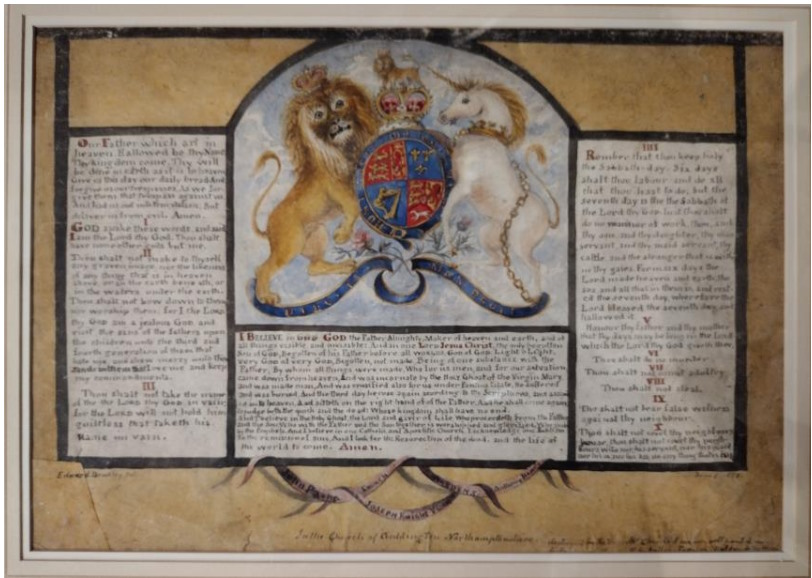 Our Father which art in
heaven Hallowed be thy Name
Thy kingdom come, Thy will
be done in earth as it is in heaven
Give us this day our daily bread And
forgive us our trespasses, As we for
give them that trespass against us
And lead us not into temptation, But
deliver us from evil. Amen.
I
GOD spake these words, and said
I am the Lord thy God. Thou shalt
have none other gods but me.
II
Thou shalt not make to thyself
any graven image, nor the likeness
of any thing that is in heaven
above, or in the earth beneath, or
in the waters under the earth.
Thou shalt not bow down to them
nor worship them: for I the Lord
thy God am a jealous God and
visit the sins of the fathers upon
the children unto the third and
fourth generations of them that
hate me, and shew mercy unto
them that love me and keep
my commandments.
III
Thou shalt not take the name
of the Lord thy God in vain
for the Lord will not hold him
guiltless that taketh his
Name in vain.
DIEU ET MON DROIT
I BELIEVE in one GOD the Father Almighty, Maker of heaven and earth, and of
all things visible and invisible: And in one Lord Jesus Christ, the only begotten
Son of God, Begotten of his Father before all worlds, God of God, Light of Light,
Very God of very God, Begotten, not made, Being of one substance with the
Father, By whom all things were made, Who for us men, and for our salvation,
came down from heaven, And was incarnate by the Holy Ghost of the Virgin Mary
and was made man, And was crucified also for us under Pontius Pilate, he suffered
and was buried, And the third day he rose again according to the Scriptures, and ascen
ded into heaven, And sitteth on the right hand of the Father, And he shall come again
to judge both the quick and the dead: Whose kingdom shall have no end.
And I believe in the holy Ghost, the Lord and giver of life, Who proceedeth from the Father
and the Son, Who with the Father and the Son together is worshipped and glorified, Who spake
by the Prophets, And I believe in one Catholic and Apostolic Church, I acknowledge one Baptism
for the remission of sins, And I look for the Resurrection of the dead, and the life of
the world to come. Amen.
IIII
Remember that thou keep holy
the Sabbath-day. Six days
shalt thou labour and do all
that thou hast to do, but the
seventh day is the Sabbath of
the Lord thy God. In it thou shalt
do no manner of work, thou, and
thy son, and thy daughter, thy man
servant, and thy maid servant, thy
cattle, and the stranger that is with
in thy gates. For in six days the
Lord made heaven and earth the
sea, and all that in them is, and rest
ed the seventh day, wherefore the
Lord blessed the seventh day, and
hallowed it.
V
Honour thy father and thy mother
that thy days may be long in the land
which the Lord thy God giveth thee.
VI
Thou shalt do no murder.
VII
Thou shalt not commit adultery.
VIII
Thou shalt not steal.
IX
Thou shalt not bear false witness
against thy neighbour.
X
Thou shalt not covet thy neighbours
house, thou shalt not covet thy neigh
bours wife, nor his servant, nor his maid
nor his ox, nor his ass, nor any thing that is his.
Edward Bradley
John Payne
Joseph Knight
In the Church of Northamptonshire